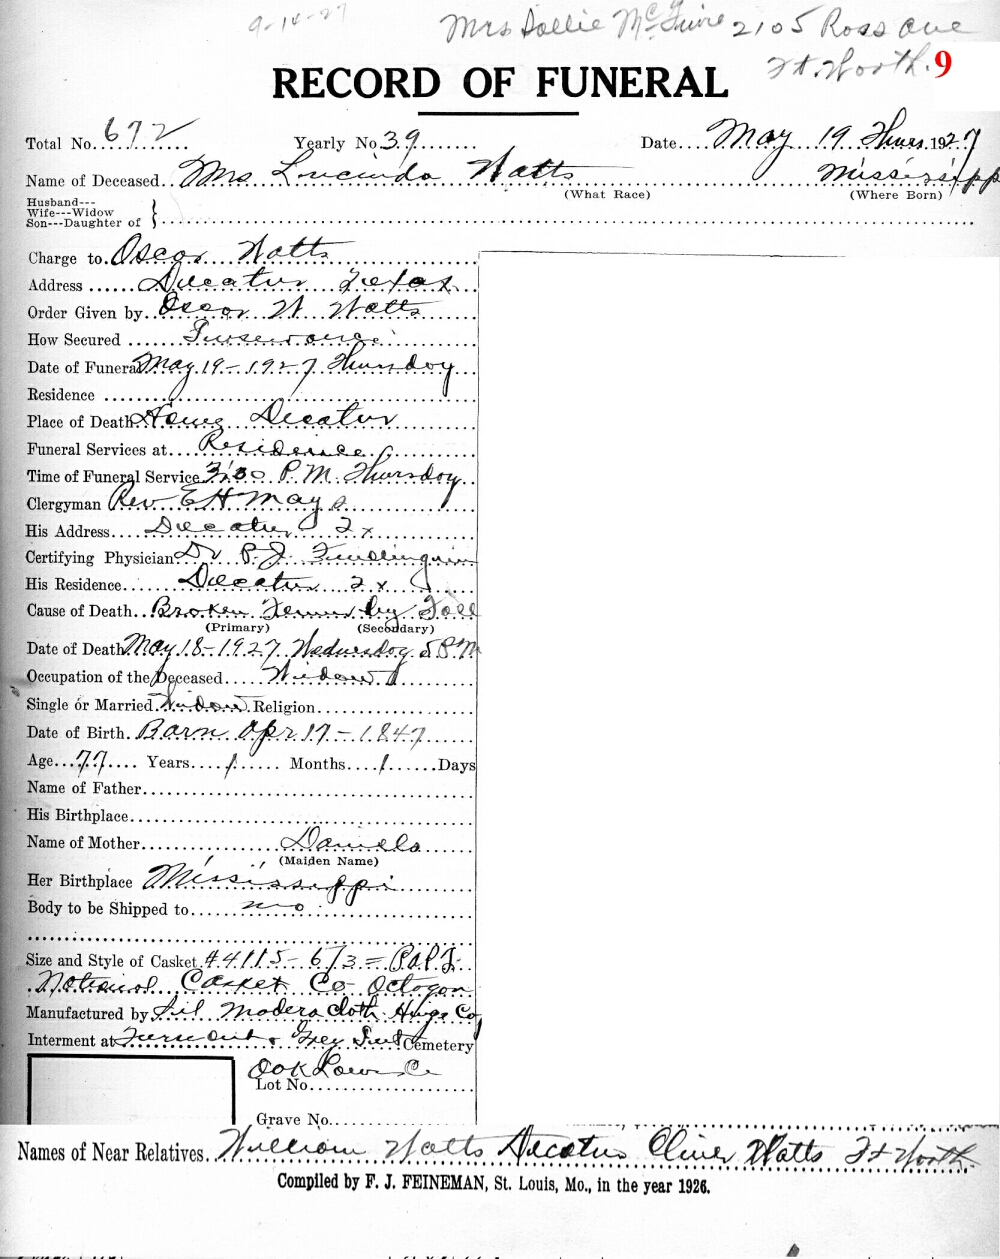 9-14-27
Mrs Sallie McGuire 2105 Ross ave
Ft. Worth. 9
RECORD OF FUNERAL
Total No. 672 Yearly No. 39 Date May 19 Thurs. 1927
Name of Deceased Mrs Lucinda Watts Mississipp
(What Race) (Where Born)
Husband---
Wife---Widow
Son---Daughter of
Charge to Oscar Watts
Address Decatur Texas
Order Given by Oscar W Watts
How Secured
Date of Funeral May 19-1927 Thursday
Residence
Place of Death Home Decatur
Funeral Services at Residence
Time of Funeral Service 3:30 P.M. Thursday
Clergyman Rev E H Mays
His Address Decatur Tx
Certifying Physician Dr P. J.
His Residence Decatur Tx
Cause of Death Broken Femur by Fall
(Primary) (Secondary)
Date of Death May 18-1927 Wednesday 5 P.M
Occupation of the Deceased Widow
Single or Married Widow Religion
Date of Birth Born Apr 17-1847
Age 77 Years 1 Months 1 Days
Name of Father
His Birthplace
Name of Mother Daniels
(Maiden Name)
Her Birthplace Mississippi
Body to be Shipped to no
Size and Style of Casket #4115-6/3=
National Casket Co Octogon
Manufactured by Sil Cloth Co
Interment at Grey Cemetery
Oak Lawn Ce
Lot No.
Grave No.
Names of Near Relatives William Watts Decatur Oliver Watts Ft Worth
Compiled by F. J. FEINEMAN, St. Louis, Mo., in the year 1926.